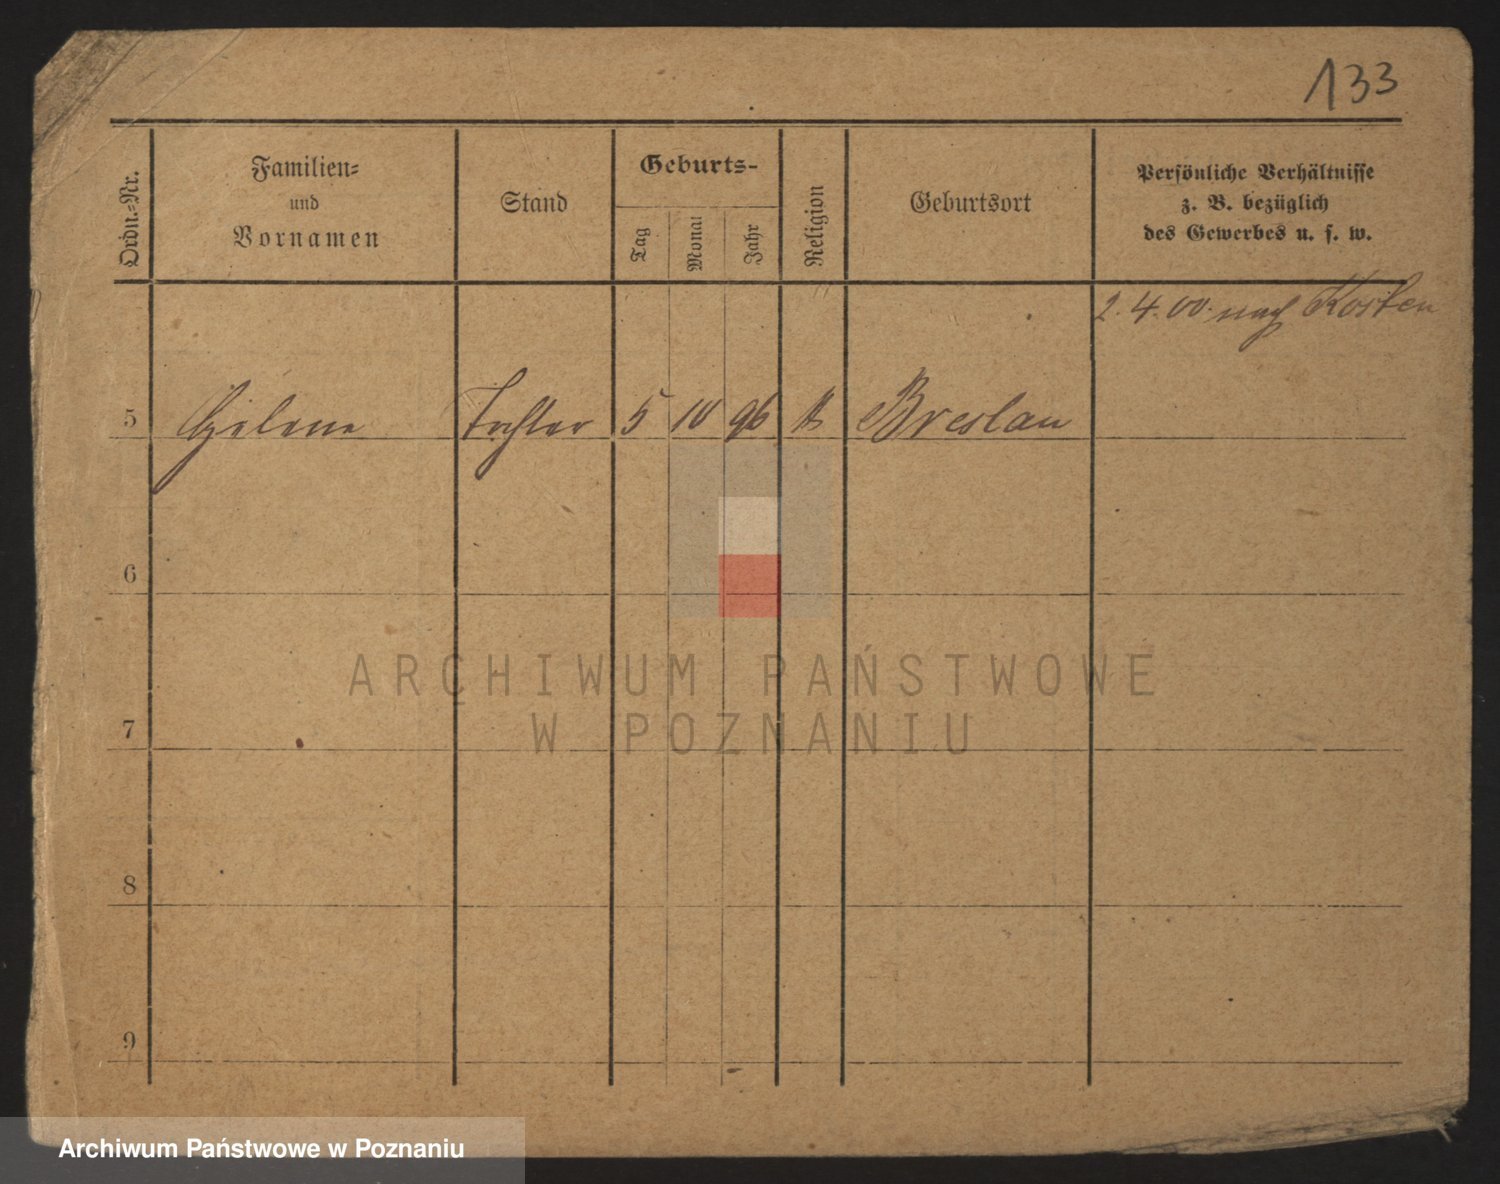 133
Ordn.-Nr.
Familien-
und
Vornamen
Stand
Geburts-
Tag
Monat
Jahr
Religion
Geburtsort
Persönliche Verhältnisse
z. B. bezüglich
des Gewerbes u. s. w.
2. 4. 00. nach Kosten
5 Helene Tochter 5 10 96 Breslau
6
7
8
9
ARCHIWUM PAŃSTWOWE
W POZNANIU
Archiwum Państwowe w Poznaniu